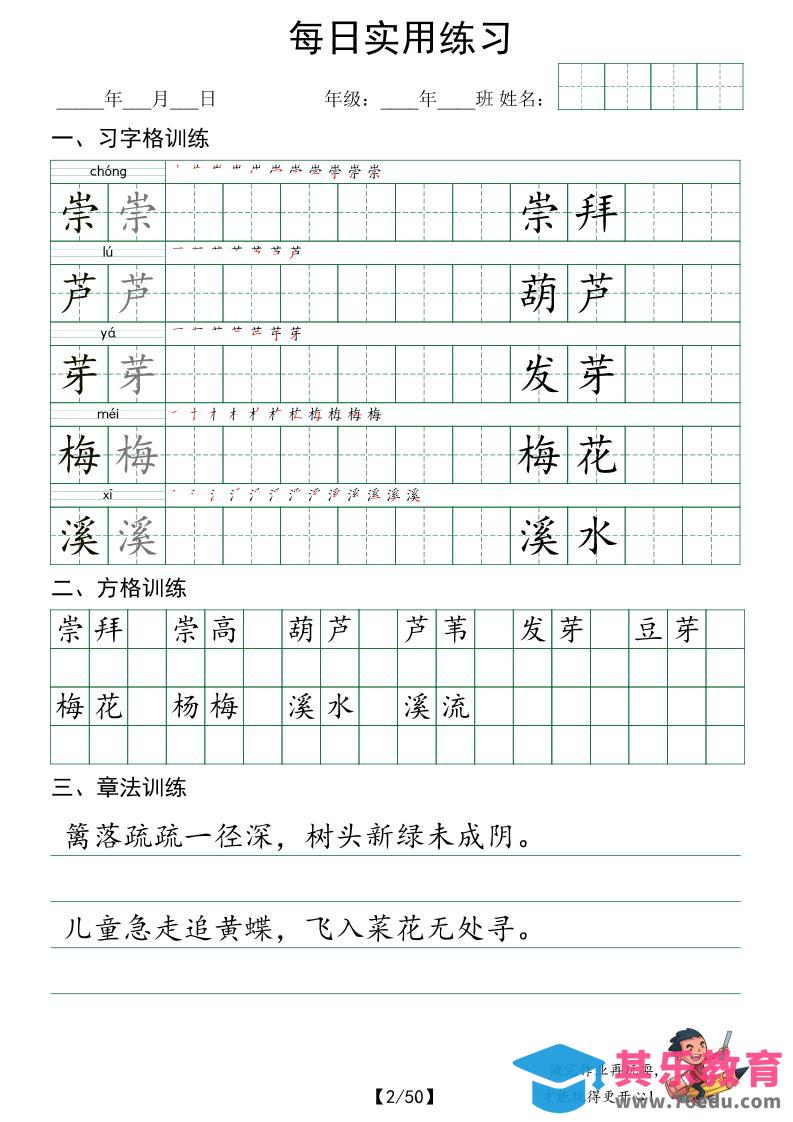 每日实用练习
_____年___月___日 年级：____年____班 姓名：
一、习字格训练
chóng
崇 崇 崇 拜
lú
芦 芦 葫 芦
yá
芽 芽 发 芽
méi
梅 梅 梅 花
xī
溪 溪 溪 水
二、方格训练
崇 拜 崇 高 葫 芦 芦 苇 发 芽 豆 芽
梅 花 杨 梅 溪 水 溪 流
三、章法训练
篱落疏疏一径深，树头新绿未成阴。
儿童急走追黄蝶，飞入菜花无处寻。
做完作业再玩耍，
才能玩得更开心！
其乐教育
www.76edu.com
【2/50】